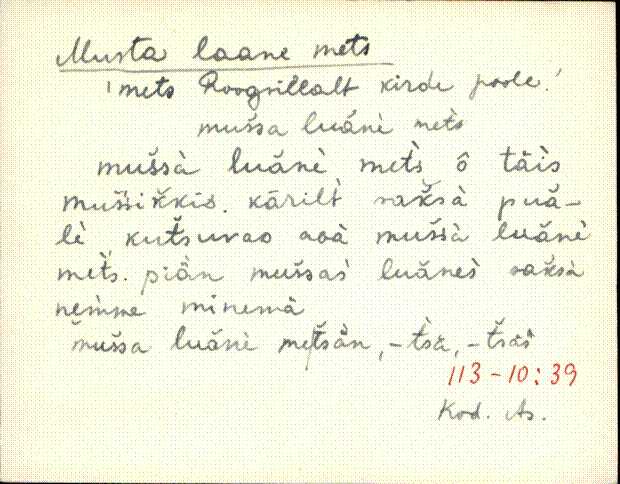 Musta laane mets
'mets Roogsillalt kirde poole.'
mušsa luǎnè met̀s
mušsà luǎnè met̀s ô täìs
mušsikkis. kārilt̀ saksà puǎ-
lè, kut̆suvad adà mušsà luǎnè
met̀s. piǎn mušsas luǎnes saksà
nem̀me minemä
mušsa luǎnè met̆sän, -t̆sä, -t̆säs
113-10:39
Kod. As.